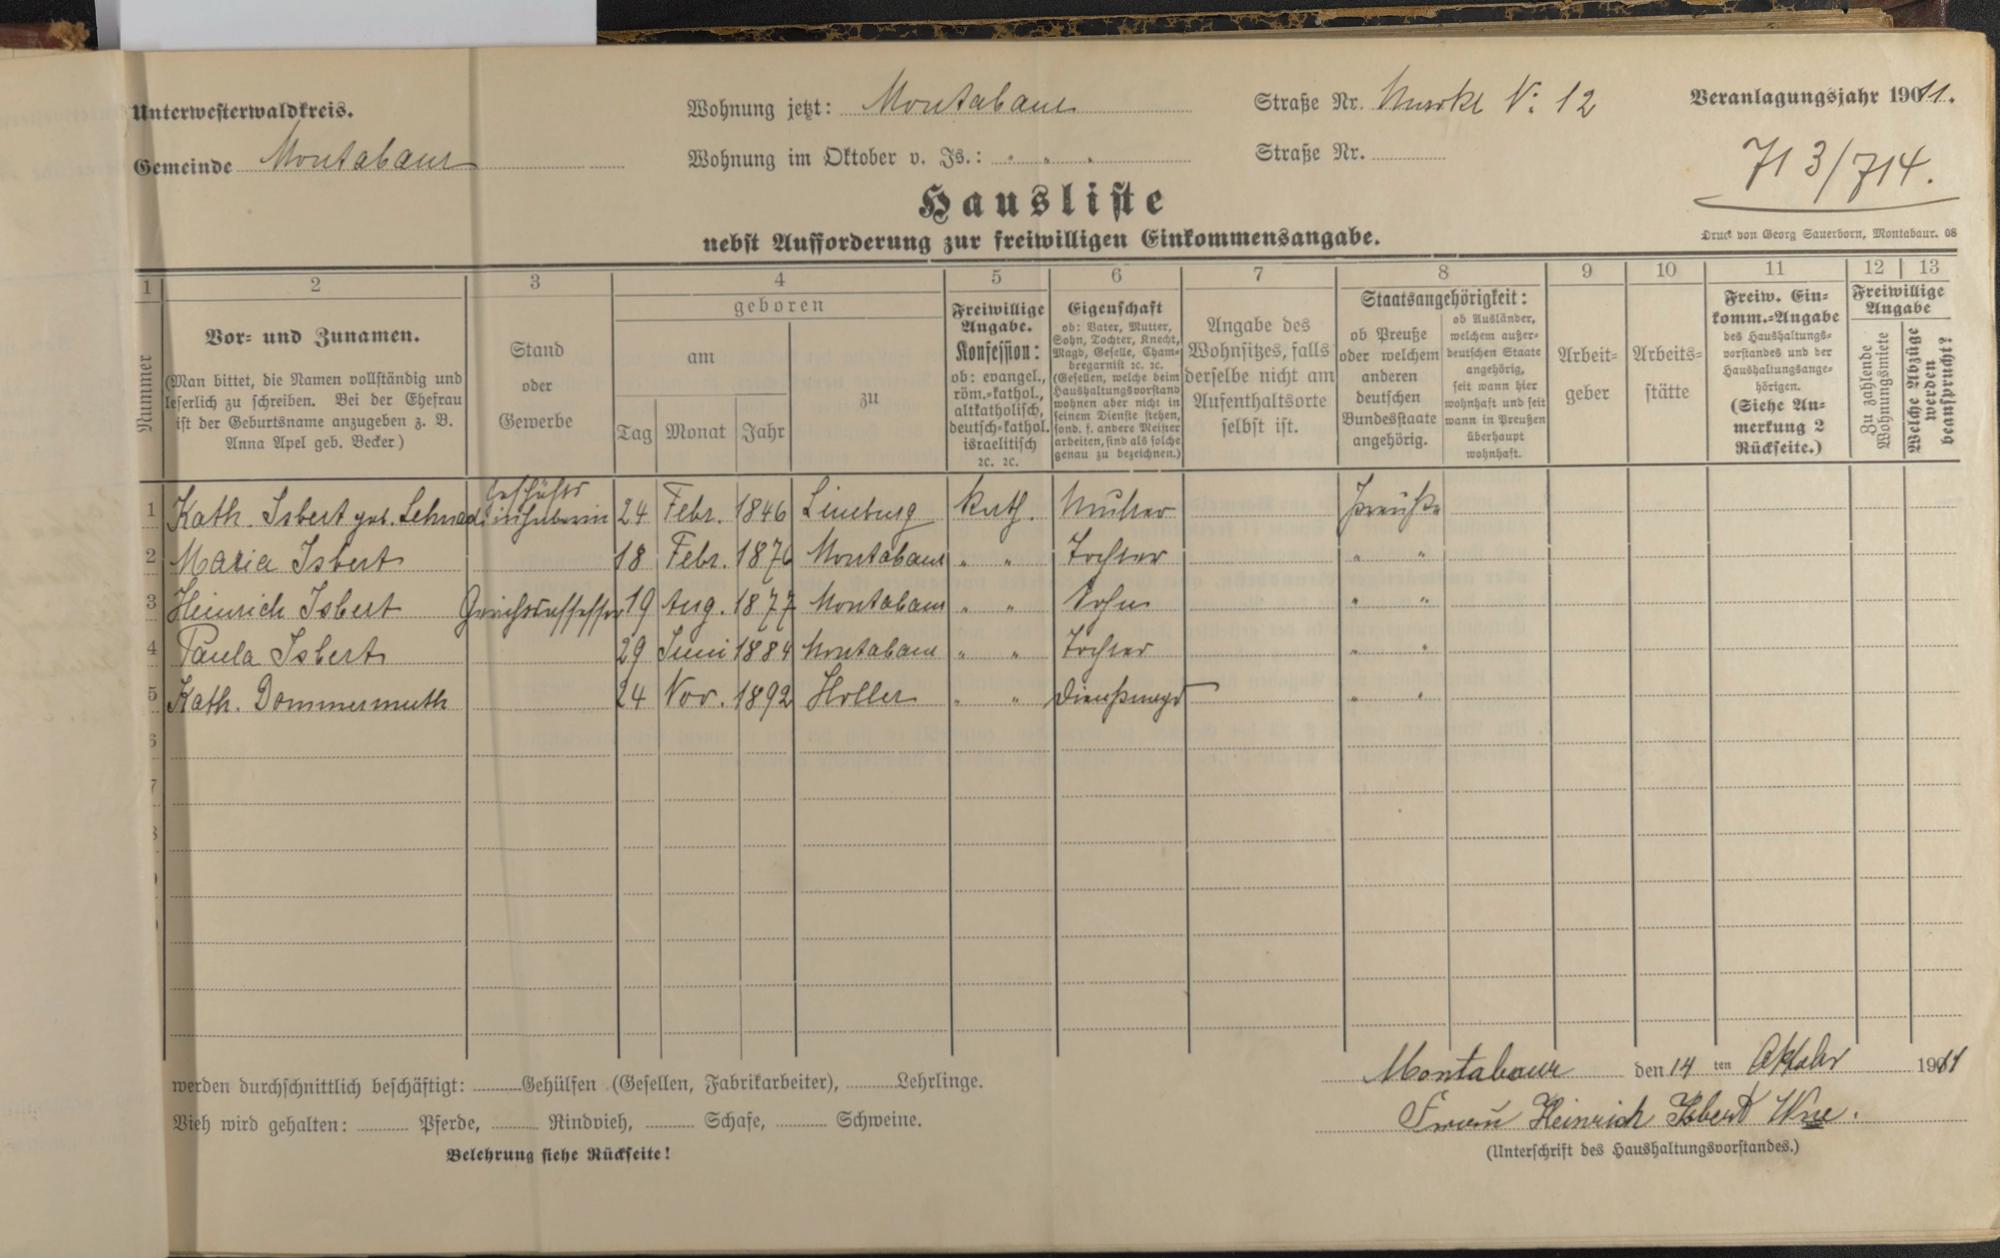 Unterwesterwaldkreis.
Wohnung jetzt: Montabaur
Straße Nr. Markt No. 12
Veranlagungsjahr 1911.
Gemeinde Montabaur
Wohnung im Oktober v. Js.: " " "
Straße Nr.
713/714.
Hausliste
nebst Aufforderung zur freiwilligen Einkommensangabe.
Druck von Georg Sauerborn, Montabaur. 08
1 2 3 4 5 6 7 8 9 10 11 12 13
Nummer
Vor- und Zunamen.
(Man bittet, die Namen vollständig und
leserlich zu schreiben. Bei der Ehefrau
ist der Geburtsname anzugeben z. B.
Anna Apel geb. Becker.)
Stand
oder
Gewerbe
geboren
am
Tag Monat Jahr
zu
Freiwillige
Angabe.
Konfession:
ob: evangel.,
röm.-kathol.,
altkatholisch,
deutsch-kathol.
israelitisch
ꝛc. ꝛc.
Eigenschaft
ob: Vater, Mutter,
Sohn, Tochter, Knecht,
Magd, Geselle, Cham-
bregarnist ꝛc. ꝛc.
(Gesellen, welche beim
Haushaltungsvorstand
wohnen aber nicht in
seinem Dienste stehen,
sond. f. andere Meister
arbeiten, sind als solche
genau zu bezeichnen.)
Angabe des
Wohnsitzes, falls
derselbe nicht am
Aufenthaltsorte
selbst ist.
Staatsangehörigkeit:
ob Preuße
oder welchem
anderen
deutschen
Bundesstaate
angehörig.
ob Ausländer,
welchem außer-
deutschen Staate
angehörig,
seit wann hier
wohnhaft und seit
wann in Preußen
überhaupt
wohnhaft.
Arbeit-
geber
Arbeits-
stätte
Freiw. Ein-
komm.-Angabe
des Haushaltungs-
vorstandes und der
Haushaltungsange-
hörigen.
(Siehe An-
merkung 2
Rückseite.)
Freiwillige
Angabe
Zu zahlende
Wohnungsmiete
Welche Abzüge
werden
beansprucht?
1 Kath. Isbert geb. Geschäfts inhaberin 24 Febr. 1846 Limburg kath. Mutter Preuße
2 Maria Isbert 18 Febr. 1876 Montabaur " " Tochter " "
3 Heinrich Isbert Gerichtsassessor 19 Aug. 1877 Montabaur " " Sohn " "
4 Paula Isbert 29 Juni 1884 Montabaur " " Tochter " "
5 Kath. Dommermuth 24 Nov. 1892 Holler " " Dienstmagd " "
6
7
8
werden durchschnittlich beschäftigt: Gehülfen (Gesellen, Fabrikarbeiter), Lehrlinge.
Vieh wird gehalten: Pferde, Rindvieh, Schafe, Schweine.
Belehrung siehe Rückseite!
Montabaur den 14 ten Oktober 1911
Frau Heinrich Isbert Wwe.
(Unterschrift des Haushaltungsvorstandes.)